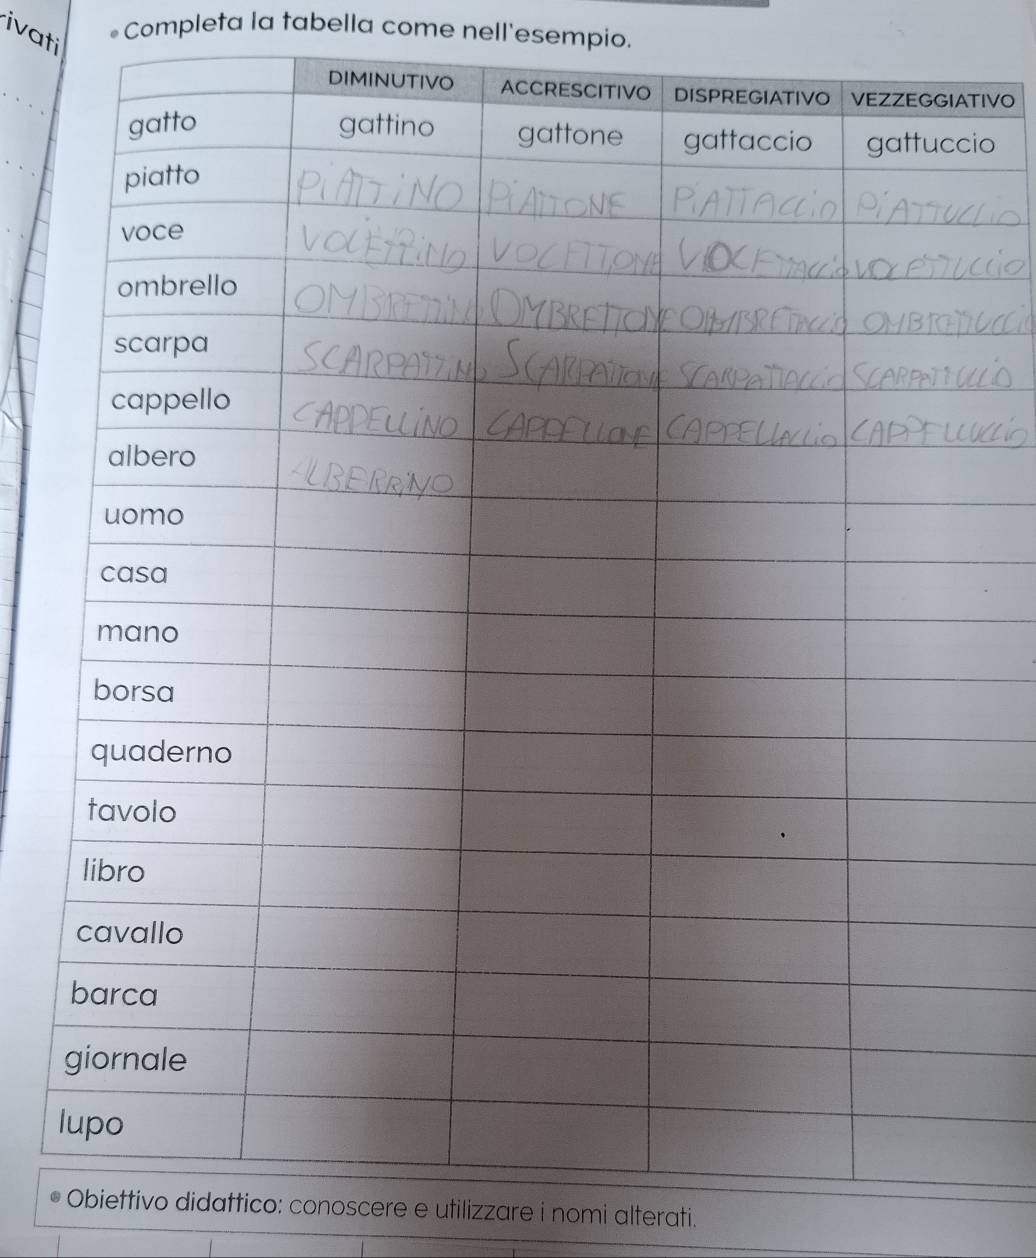 rivati
Completa la tabella come nell'esempio.
DIMINUTIVO ACCRESCITIVO DISPREGIATIVO VEZZEGGIATIVO
gatto gattino gattone gattaccio gattuccio
piatto PiATTiNO PiATTONE PiATTACCiO PiATTUCCiO
voce VOCETTiNO VOCETTONE VOCETTACCiO VOCETTUCCiO
ombrello OMBRETTINO OMBRETTONE OMBRETTACCIO OMBRETTUCCI
scarpa SCARPATTINO SCARPATTONE SCARPATTACCIO SCARPATTUCCIO
cappello CAPPELLiNO CAPPELLONE CAPPELLACCiO CAPPELLUCCiO
albero ALBERRiNO
uomo
casa
mano
borsa
quaderno
tavolo
libro
cavallo
barca
giornale
lupo
Obiettivo didattico: conoscere e utilizzare i nomi alterati.